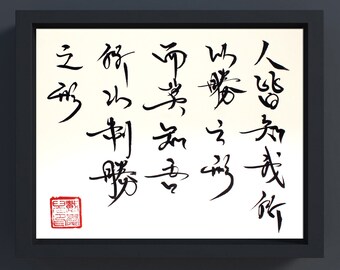 人皆知我所
以勝之形
而莫知吾
所以制勝
之形